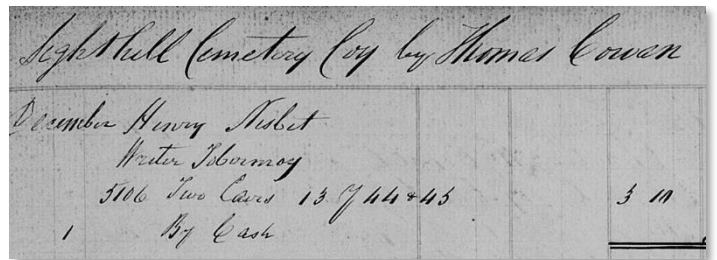 Sighthill Cemetery Coy by Thomas Cowan
December Henry Nisbet
Writer Tobermory
5106 Two Lairs 13 44 & 45 3 10
1 By Cash